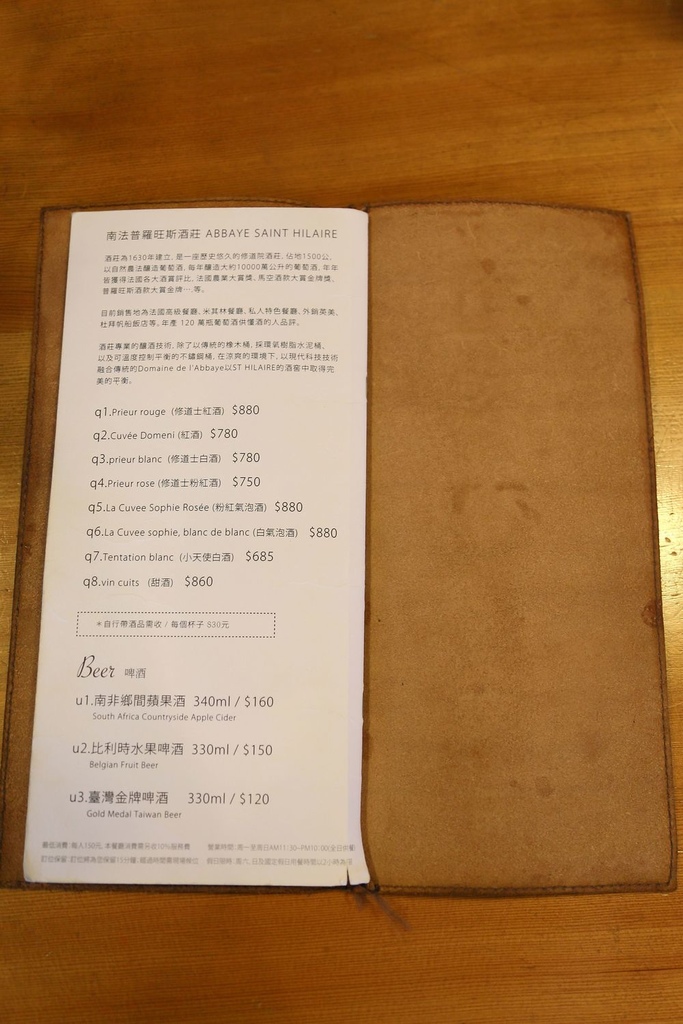 南法普羅旺斯酒莊 ABBAYE SAINT HILAIRE
酒莊為1630年建立, 是一座歷史悠久的修道院酒莊, 佔地1500公,
以自然農法釀造葡萄酒, 每年釀造大約10000萬公升的葡萄酒, 年年
皆獲得法國各大酒賞評比, 法國農業大賞獎、馬空酒款大賞金牌獎,
普羅旺斯酒款大賞金牌…,等。
目前銷售地為法國高級餐廳、米其林餐廳、私人特色餐廳、外銷英美、
杜拜帆船飯店等。年產 120 萬瓶葡萄酒供懂酒的人品評。
酒莊專業的釀酒技術, 除了以傳統的橡木桶, 採環氧樹脂水泥桶,
以及可溫度控制平衡的不鏽鋼桶, 在涼爽的環境下, 以現代科技技術
融合傳統的Domaine de l'Abbaye以ST HILAIRE的酒窖中取得完
美的平衡。
q1.Prieur rouge (修道士紅酒) $880
q2.Cuvée Domeni (紅酒) $780
q3.prieur blanc (修道士白酒) $780
q4.Prieur rose (修道士粉紅酒) $750
q5.La Cuvee Sophie Rosée (粉紅氣泡酒) $880
q6.La Cuvee sophie, blanc de blanc (白氣泡酒) $880
q7.Tentation blanc (小天使白酒) $685
q8.vin cuits (甜酒) $860
*自行帶酒品需收 / 每個杯子 $30元
Beer 啤酒
u1.南非鄉間蘋果酒 340ml / $160
South Africa Countryside Apple Cider
u2.比利時水果啤酒 330ml / $150
Belgian Fruit Beer
u3.臺灣金牌啤酒 330ml / $120
Gold Medal Taiwan Beer
最低消費: 每人150元, 本餐廳消費需另收10%服務費 營業時間: 周一至周日AM11:30~PM10:00(全日供餐
訂位保留: 訂位將為您保留15分鐘, 超過時間需現場候位 假日限時: 周六、日及國定假日用餐時間以2小時為